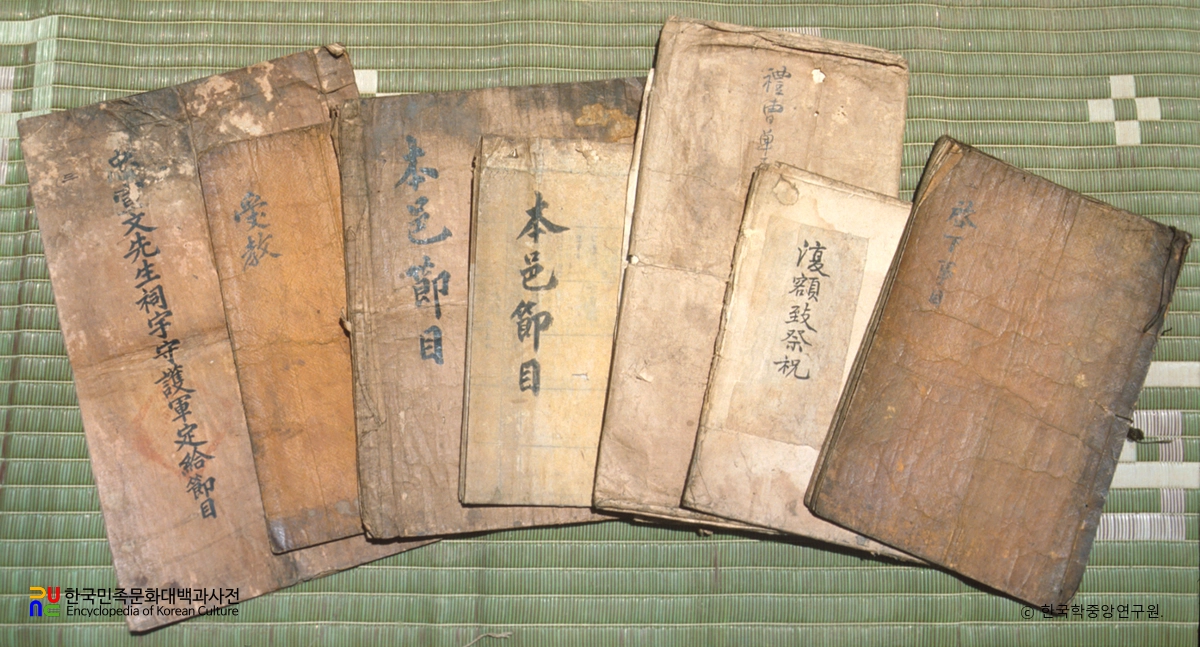 文先生祠宇守護軍定給節目
受教
本邑節目
本邑節目
禮曹單
復額致祭祝
啓下節目
한국민족문화대백과사전
Encyclopedia of Korean Culture
© 한국학중앙연구원.